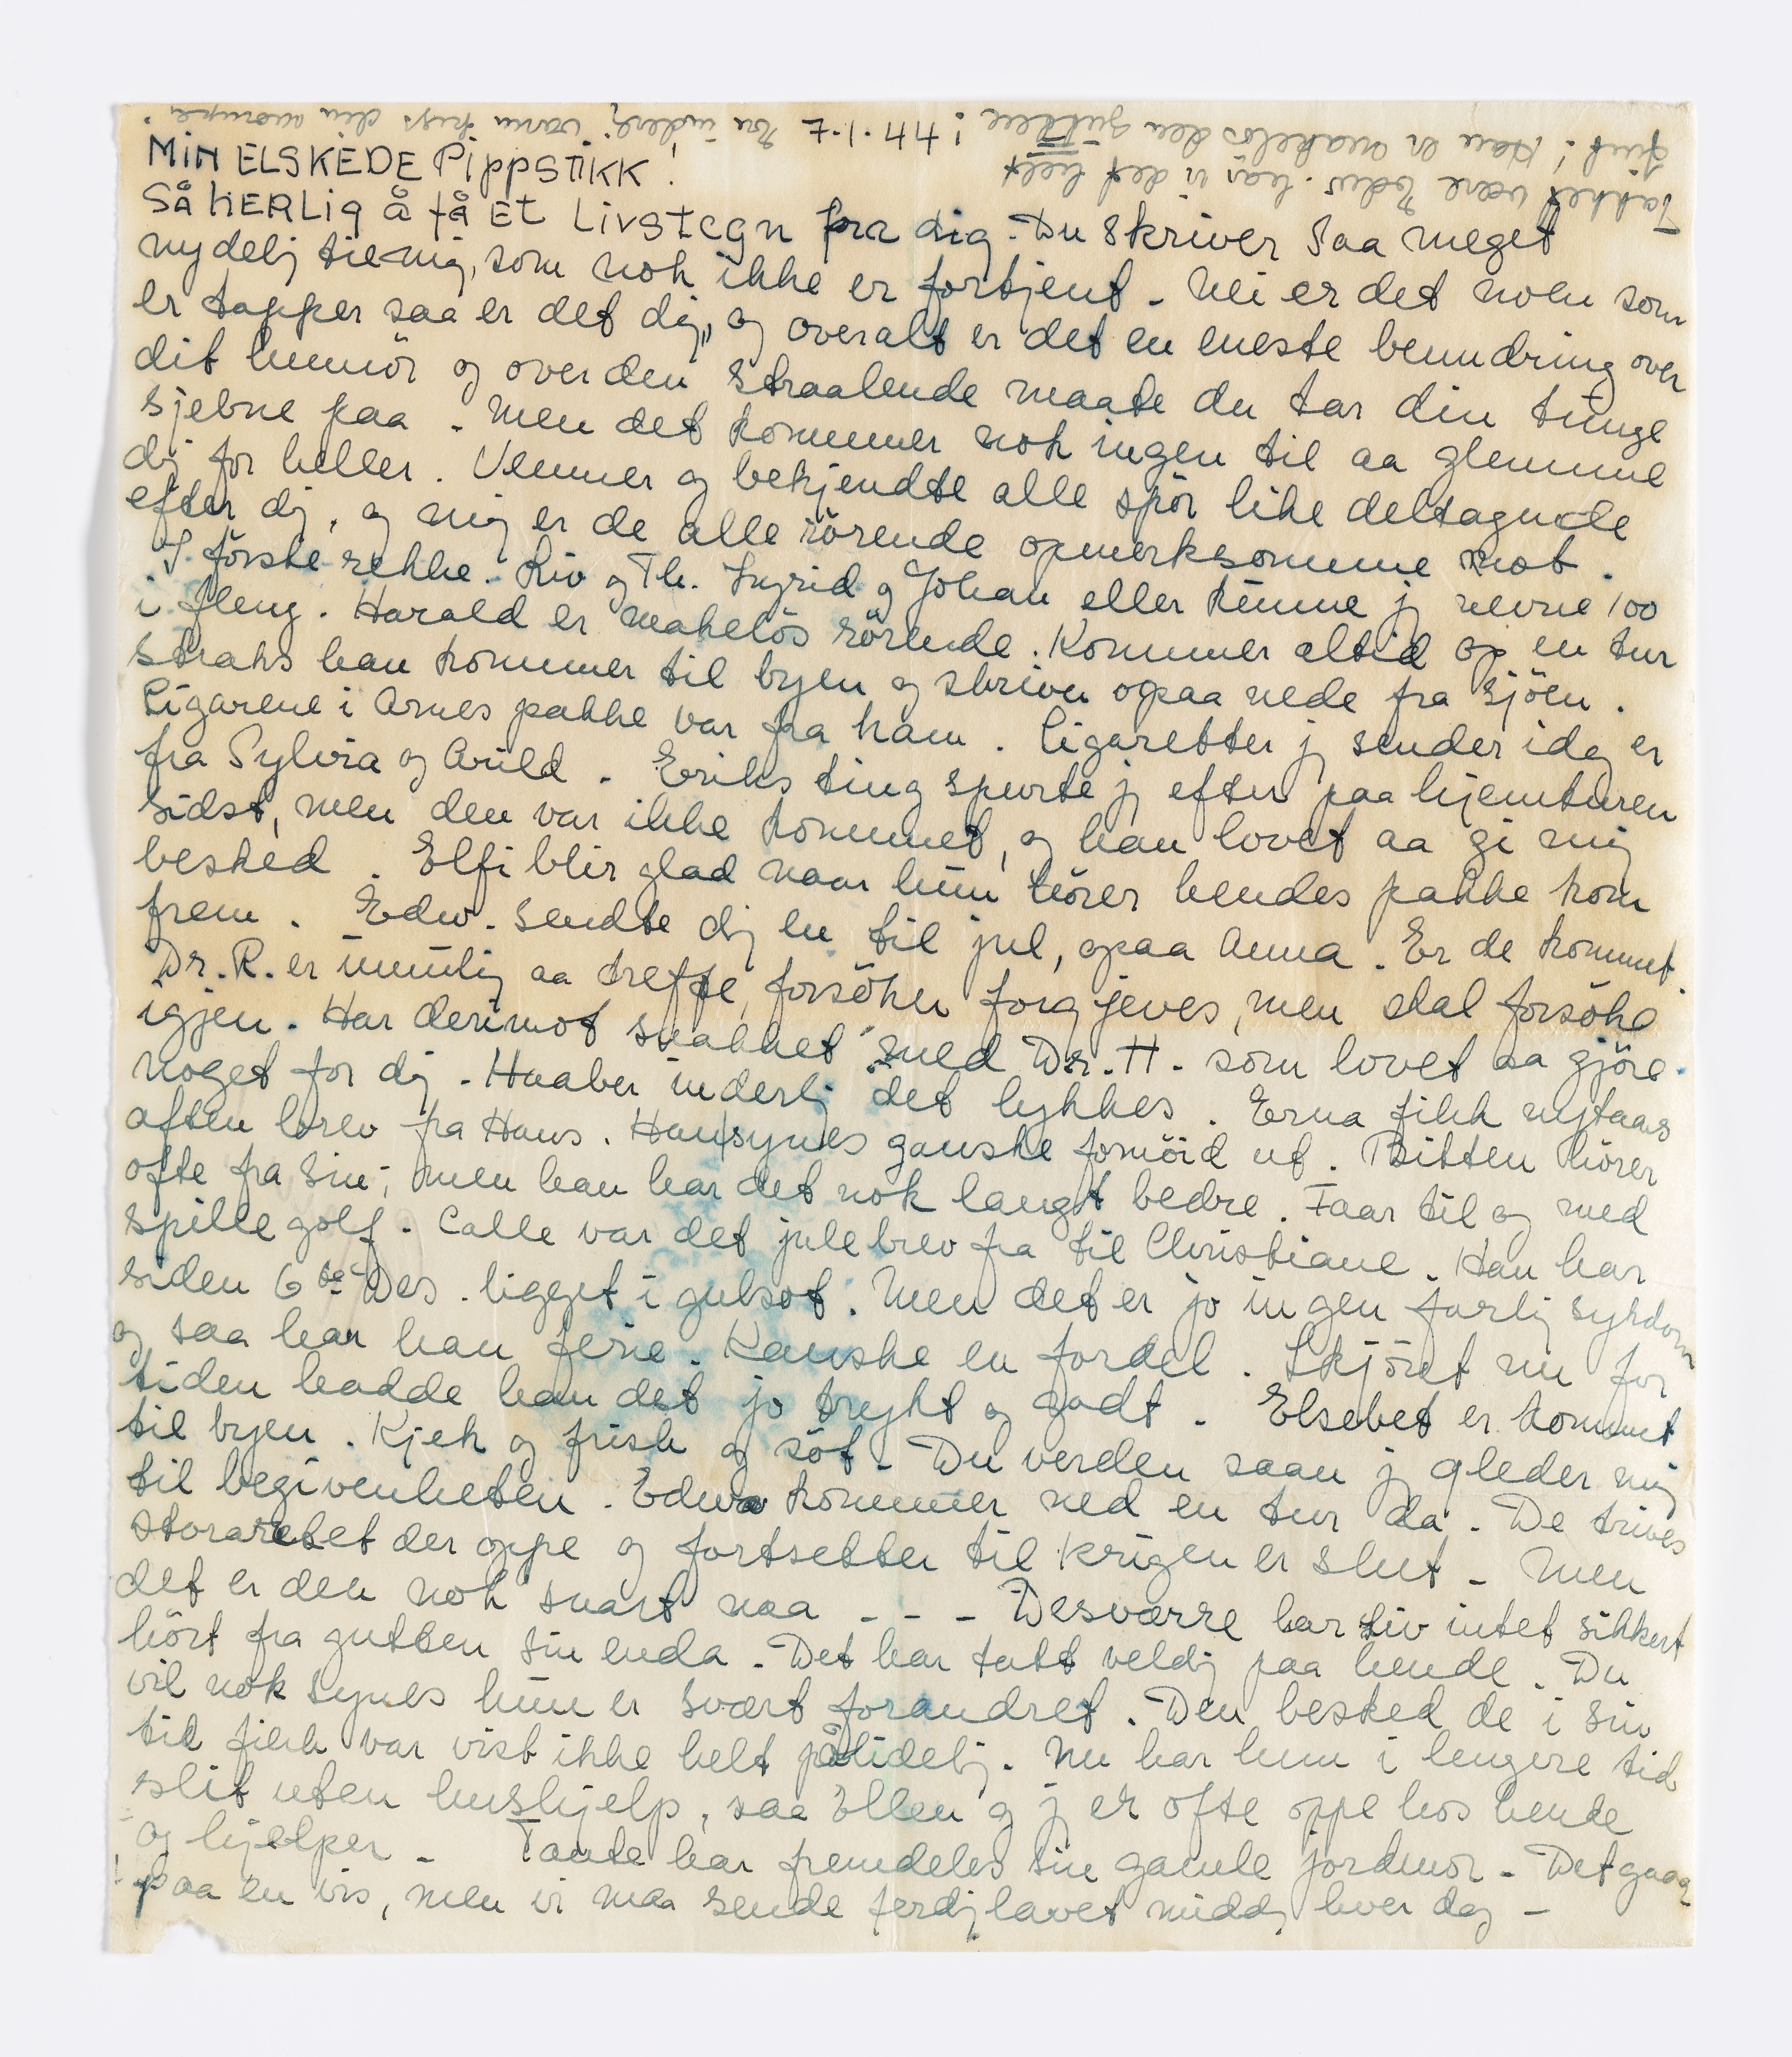 MIN ELSKEDE PIPPSTIKK!
Så HERLIG å få ET Livstegn fra dig. Du skriver saa meget
nydelj til mig, som nok ikke er fortjent. Nei er det noen som
er tapper saa er det dig, og overalt er det en eneste beundring over
dit humör og over den straalende maate du tar din tunge
sjebne paa. Men det kommer nok ingen til aa glemme
dij for heller. Venner og bekjendte alle spör like deltagende
efter dij, og mig er de alle rörende opmerksomme mot.
I förste rekke. Liv og Th. Ingrid og Johan eller kunne jj nevne 100
i fleng. Harald er makelös rörende. Kommer altid op en tur
straks han kommer til byen og skriver opaa nede fra sjöen.
Cigarene i Arnes pakke var fra ham. Cigaretter jj sender idag er
fra Sylvia og Arild. Eriks ting spurte jj efter paa hjemturen
sidst, men den var ikke kommet, og han lovet aa gi mig
besked. Elfi blir glad naar hun hörer hendes pakke kom
frem. Edw. sendte dij en til jul, opaa Anna. Er de kommet.
Dr. R. er umulig aa treffe, forsöker forgjeves, men skal forsöke
igjen. Har derimot snakket med Dr. H. som lovet aa gjöre
noget for dij. Haaber inderlj det lykkes. Erna fikk nytaars
aften brev fra Hans. Han synes ganske fornöid ut. Bitten hörer
ofte fra sin, men han har det nok langt bedre. Faar til og med
spille golf. Calle var det julebrev fra til Christiane. Han har
siden 6te Des. ligget i gulsot. Men det er jo ingen farlij sykdom
og saa har han ferie. Kanske en fordel. Skjönt nu for
tiden hadde han det jo trykt og godt. Elsebet er kommet
til byen. Kjek og frisk og söt. Du verden saan jj gleder mig
til begivenheten. Edw. kommer ned en tur da. De trives
storaretet der oppe og fortsetter til krigen er slut - Men
det er den nok snart naa - - - Desværre har Liv intet sikkert
hört fra gutten sin enda. Det har tatt veldij paa hende. Du
vil nok synes hun er svært forandret. Den besked de i sin
tid fikk var vist ikke helt pålidelij. Nu har hun i lengere tid
slit uten hushjelp, saa Ellen og jj er ofte oppe hos hende
og hjelper - Tante har fremdeles sin gamle jordmor - Det gaar
paa en vis, men vi maa sende ferdij lavet middj hver dag -
Takket være Edw. har vi det helt
fint! Han er makelös den gutten! 7-1-44 En inderlj varm kys din